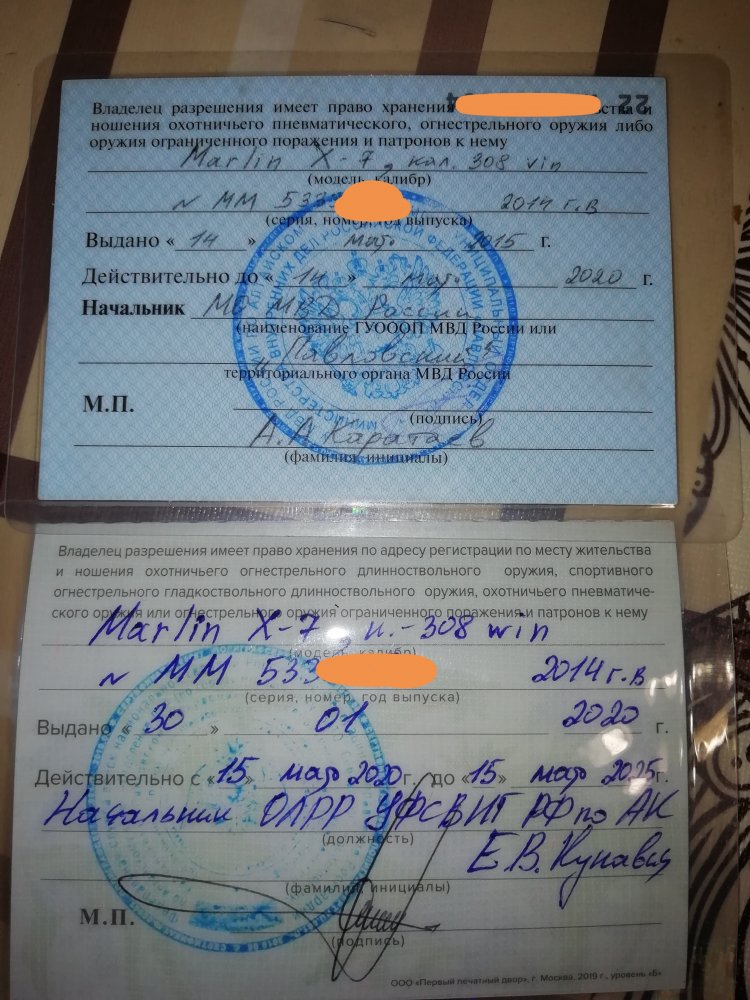 Владелец разрешения имеет право хранения ства и
ношения охотничьего пневматического, огнестрельного оружия либо
оружия ограниченного поражения и патронов к нему
Marlin X-7, кал. 308 vin
(модель, калибр)
N ММ 533 2014 г.в
(серия, номер, год выпуска)
Выдано « 14 » мар. 2015 г.
Действительно до « 14 » мар. 2020 г.
Начальник МО МВД России
(наименование ГУОООП МВД России или
Павловский"
территориального органа МВД России
М.П.
(подпись)
А.А. Каратаев
(фамилия, инициалы)
Владелец разрешения имеет право хранения по адресу регистрации по месту жительства
и ношения охотничьего огнестрельного длинноствольного оружия, спортивного
огнестрельного гладкоствольного длинноствольного оружия, охотничьего пневматиче-
ского оружия или огнестрельного оружия ограниченного поражения и патронов к нему
Marlin X-7, к.-308 win
(модель, калибр)
N ММ 533 2014 г.в
(серия, номер, год выпуска)
Выдано « 30 » 01 2020 г.
Действительно с «15» мар 2020г. до «15» мар 2025г.
Начальник ОЛРР УФСВНГ РФ по АК
(должность)
Е.В.
(фамилия, инициалы)
М.П.
(подпись)
ООО «Первый печатный двор», г. Москва, 2019 г., уровень «Б»